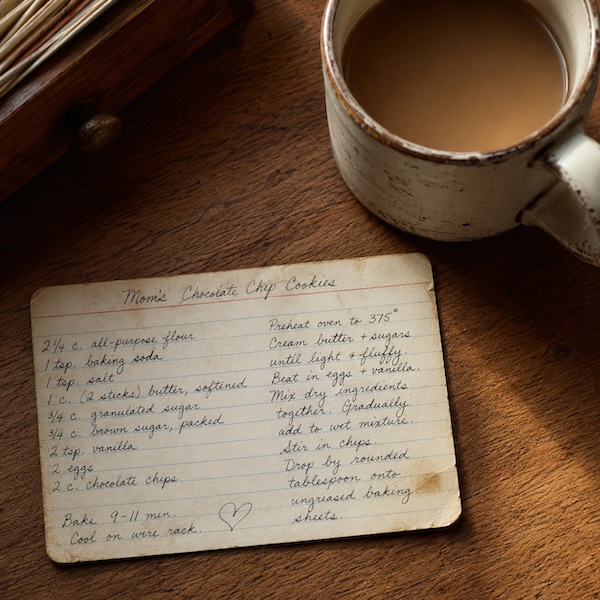 Mom's Chocolate Chip Cookies
2 1/4 c. all-purpose flour
1 tsp. baking soda
1 tsp. salt
1 c. (2 sticks) butter, softened
3/4 c. granulated sugar
3/4 c. brown sugar, packed
2 tsp. vanilla
2 eggs
2 c. chocolate chips
Bake 9-11 min.
Cool on wire rack.
Preheat oven to 375°
Cream butter + sugars
until light & fluffy.
Beat in eggs + vanilla.
Mix dry ingredients
together. Gradually
add to wet mixture.
Stir in chips.
Drop by rounded
tablespoon onto
ungreased baking
sheets.